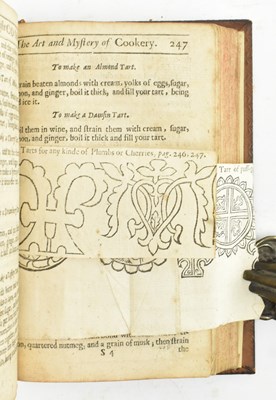 The Art and Mystery of Cookery. 247
To make an Almond Tart.
rain beaten almonds with cream, yolks of eggs, sugar,
on, and ginger, boil it thick, and fill your tart, being
ice it.
To make a Damsin Tart.
il them in wine, and strain them with cream, sugar,
on, and ginger, boil it thick and fill your tart.
Tarts for any kinde of Plumbs or Cherries, pag. 246. 247.
Tart of
on, quartered nutmeg, and a grain of musk; then strain
S 4 the